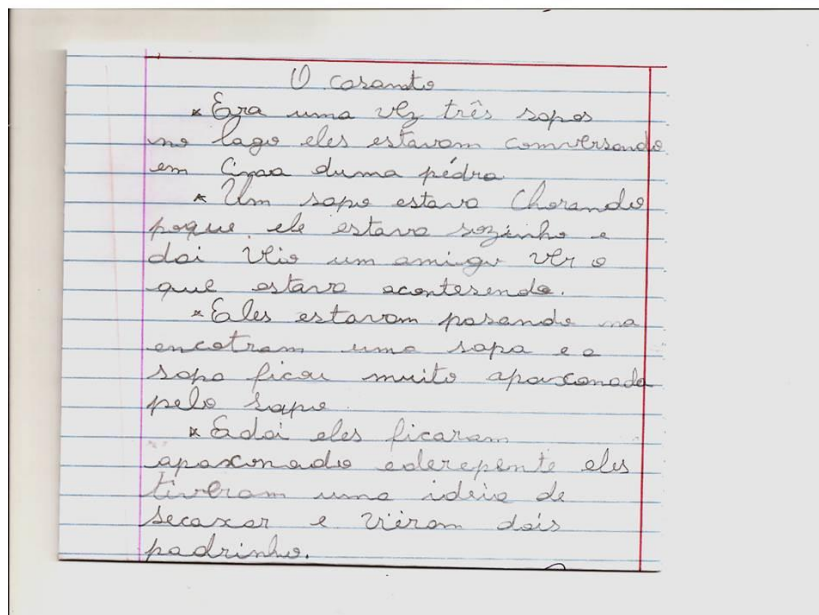 O casamto
* Era uma vez três sapos
no lago eles estavam comversando
em cima duma pédra
* Um sapo estava Chorando
poque ele estava sozinho e
dai veio um amigo ver o
que estava acontesendo.
* Eeles estavam pasando na
encotram uma sapa e a
sapa ficou muito apaxonada
pelo sapo
* Edai eles ficaram
apaxonado ederepente eles
tiveram uma idéia de
secaxar e viéram dois
padrinho.